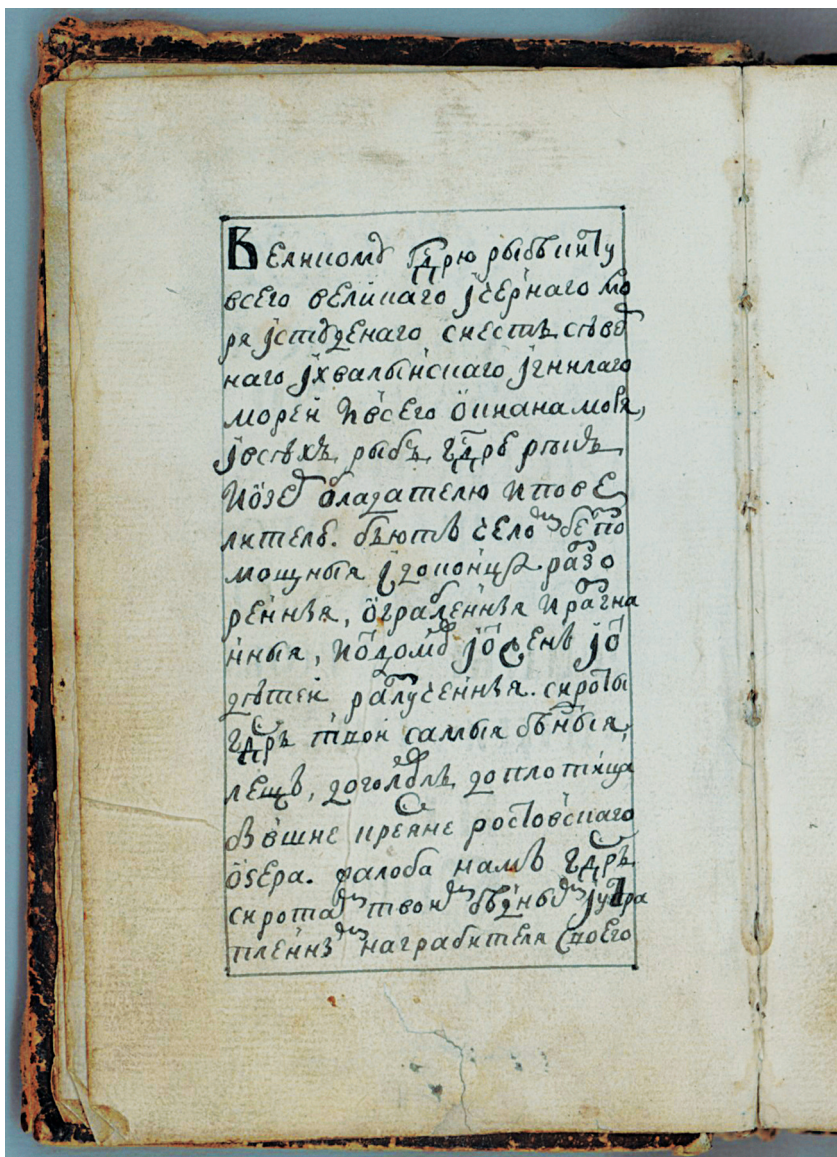 Великому гдрю рыбъ киту
всего великаго ј чернаго мо
ря ј студенаго с месть свѣт
наго ј хвалынскаго ј гнилаго
морей и всего ӧкиана моря,
ј всѣхъ рыбъ гдрю рѣкъ
и ӧзеръ ӧбладателю и пове
лителю. бьютъ челомъ безпо
мощныя ј до конца разо
реннѣя, ӧграбленнѣя и разгна
нныя, и ѿ домовъ ј ѿ женъ ј ѿ
дѣтей разлученнѣя. сироты
гдрь твои самыя бѣдныя,
лещъ, до головль до плотица
бывшие крестьяне ростовскаго
ӧзера. жалоба намъ гдрь
сиротамъ твоимъ бѣднымъ ј утра
пленнымъ на грабителя своего